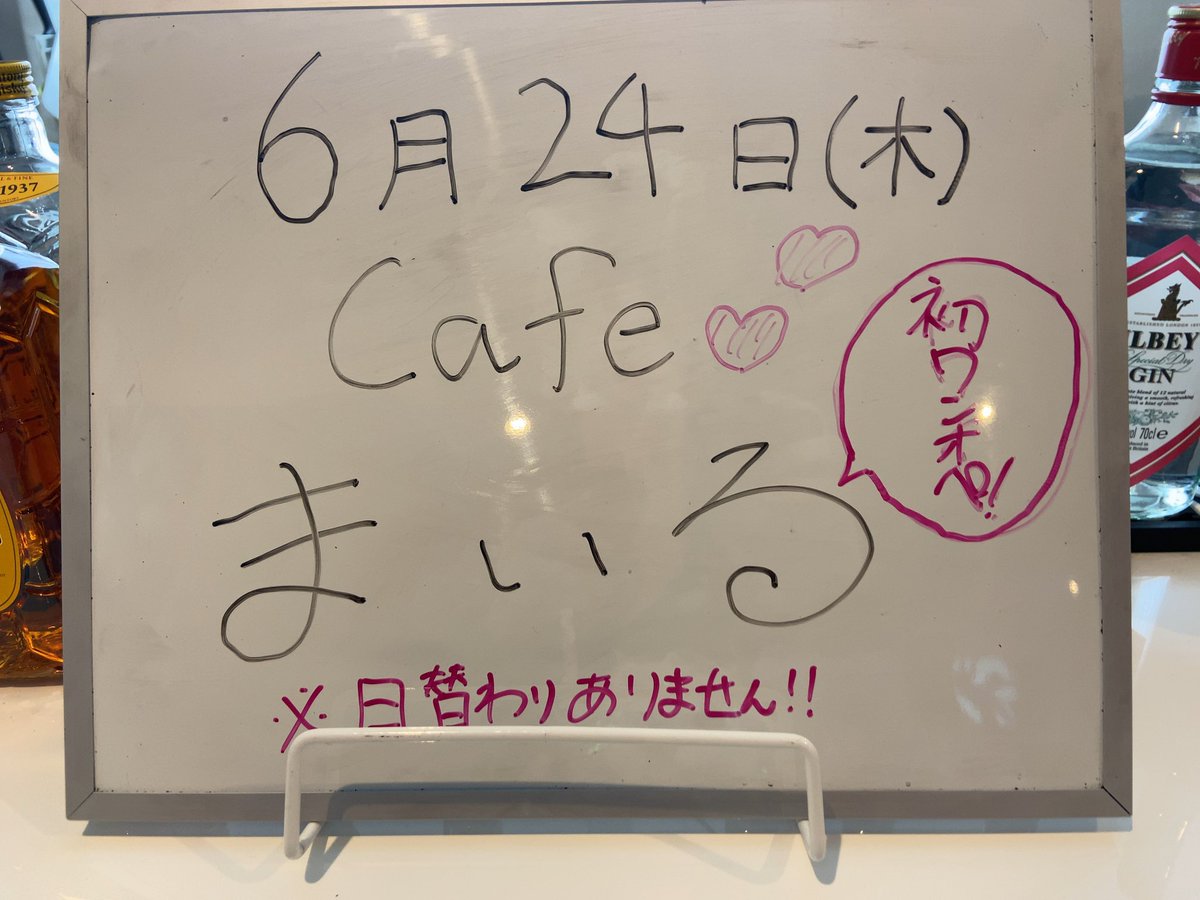 6月24日(木)
Cafe
初ワンオペ!
まいる
※日替わりありません!!
1937
ILBEY
Special Dry
GIN
70cl e